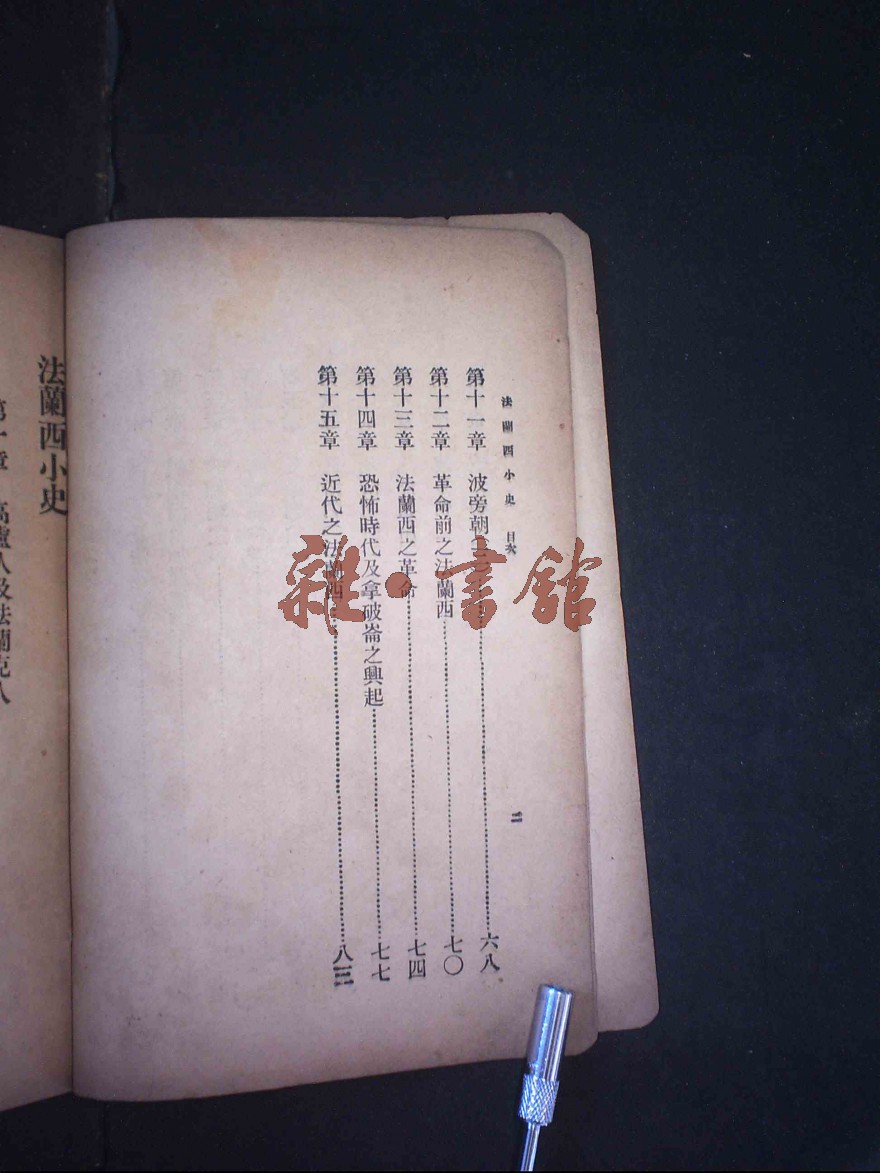 法蘭西小史 目次 二
第十一章 波旁朝 六八
第十二章 革命前之法蘭西 七〇
第十三章 法蘭西之革命 七四
第十四章 恐怖時代及拿破崙之興起 七七
第十五章 近代之法蘭西 八三
法蘭西小史
第一章 高盧人及法蘭克人
雜·書館